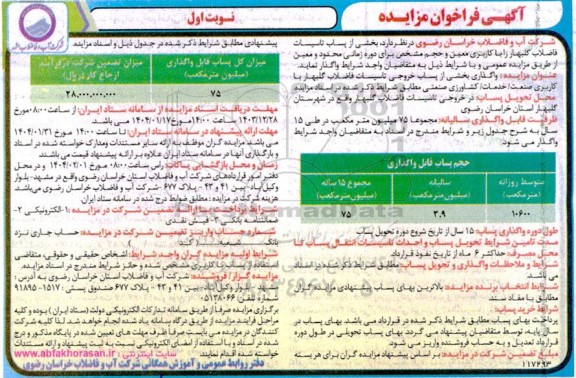 آگهی فراخوان مزایده
نوبت اول
شرکت آب و فاضلاب خراسان رضوی
شرکت آب و فاضلاب خراسان رضوی در نظر دارد، بخشی از پساب تاسیسات
فاضلاب گلبهار را با کاربری معین و حجم مشخص برای دوره زمانی محدود و معین
از طریق مزایده عمومی و با شرایط ذیل به متقاضیان واجد شرایط واگذار نمایند:
عنوان مزایده: واگذاری بخشی از پساب خروجی تاسیسات فاضلاب گلبهار با
کاربری صنعت/خدمات/کشاورزی صنعتی مطابق شرایط ذکر شده در اسناد مزایده
محل تحویل پساب: در خروجی تاسیسات فاضلاب گلبهار واقع در شهرستان
گلبهار استان خراسان رضوی
ظرفیت قابل واگذاری سالیانه: مجموعا ۷۵ میلیون متر مکعب در طی ۱۵
سال به شرح جدول زیر و شرایط مندرج در اسناد به متقاضیان واجد شرایط
واگذار می شود.
حجم پساب قابل واگذاری
متوسط روزانه (مترمکعب)
سالیانه (میلیون مترمکعب)
مجموع ۱۵ ساله (میلیون مترمکعب)
۱۰۶۰۰
۳.۹
۷۵
طول دوره واگذاری پساب: ۱۵ سال از تاریخ شروع دوره تحویل پساب
مدت تامین شرایط تحویل پساب و احداث تاسیسات انتقال پساب تا
محل مصرف: حداکثر ۶ ماه از تاریخ نفوذ قرارداد
شرایط و ملاحظات واگذاری و تحویل پساب: مطابق شرایط ذکر شده در اسناد
می باشد.
شرایط انتخاب برنده مزایده: بالاترین بهای پساب پیشنهادی مزایده گران
مطابق با مفاد سند
شرایط خرید پساب:
پرداخت بهای پساب مطابق شرایط ذکر شده در قرارداد می باشد. بهای پساب در
سال پایه توسط متقاضیان پیشنهاد می گردد. بهای پساب تحویلی در طول دوره
قرارداد تعدیل و به حساب فروشنده واریز می شود.
مبلغ تضمین شرکت در مزایده: بر اساس پیشنهاد مزایده گران برای هر بسته
۱۱۷۶۹۳
پیشنهادی مطابق شرایط ذکر شده در جدول ذیل و اسناد مزایده
میزان کل پساب قابل واگذاری (میلیون مترمکعب)
میزان تضمین شرکت در فرآیند ارجاع کار (ریال)
۷۵
۲۸,۰۰۰,۰۰۰,۰۰۰
مهلت دریافت اسناد مزایده از سامانه ستاد ایران: از ساعت ۰۸:۰۰ مورخ
۱۴۰۳/۱۲/۲۸ تا ساعت ۱۴:۰۰ مورخ ۱۴۰۴/۰۱/۱۷ می باشد.
مهلت ارائه پیشنهاد در سامانه ستاد ایران: تا ساعت ۱۴:۰۰ مورخ ۱۴۰۴/۰۱/۳۱
می باشد. مزایده گران موظف به ارائه سایر مستندات ومدارک خواسته شده در اسناد
و بارگذاری آنها در سامانه ستاد ایران علاوه بر ارائه پیشنهاد قیمت می باشند.
زمان و محل بازگشایی پاکات: راس ساعت ۰۸:۰۰ مورخ ۱۴۰۴/۰۲/۰۱ و در محل
دفتر امور قراردادهای شرکت آب و فاضلاب استان خراسان رضوی واقع در مشهد- بلوار
وکیل آباد- بین ۴۱ و ۴۳ - پلاک ۶۷۷ - شرکت آب و فاضلاب خراسان رضوی می باشد.
هزینه شرکت در مزایده: مطابق ضوابط درج شده در سامانه ستاد ایران
شرایط پرداخت و ارائه تضمین شرکت در مزایده: ۱-الکترونیکی ۲-
ضمانتنامه بانکی ۳-فیش نقدی
شرایط اولیه مزایده گران واجد شرایط: اشخاص حقیقی و حقوقی، متقاضی
استفاده از پساب با کاربری مشخص شده و حائز شرایط مندرج در اسناد مزایده.
مزایده گزار / فروشنده: شرکت آب و فاضلاب استان خراسان رضوی به آدرس
مشهد- بلوار وکیل آباد- بین ۴۱ و ۴۳ - پلاک ۶۷۷ صندوق پستی: ۵۱۷-۹۱۸۹۵
شماره تلفن: ۰۵۱۳۸۰۶۶
برگزاری مزایده صرفا از طریق سامانه تدارکات الکترونیکی دولت (ستاد ایران) بوده و کلیه
مراحل فرایند مزایده از طریق درگاه سامانه یاد شده انجام خواهد شد. لذا کلیه شرکت
سایت اینترنتی: www.abfakhorasan.ir
دفتر روابط عمومی و آموزش همگانی شرکت آب و فاضلاب خراسان رضوی